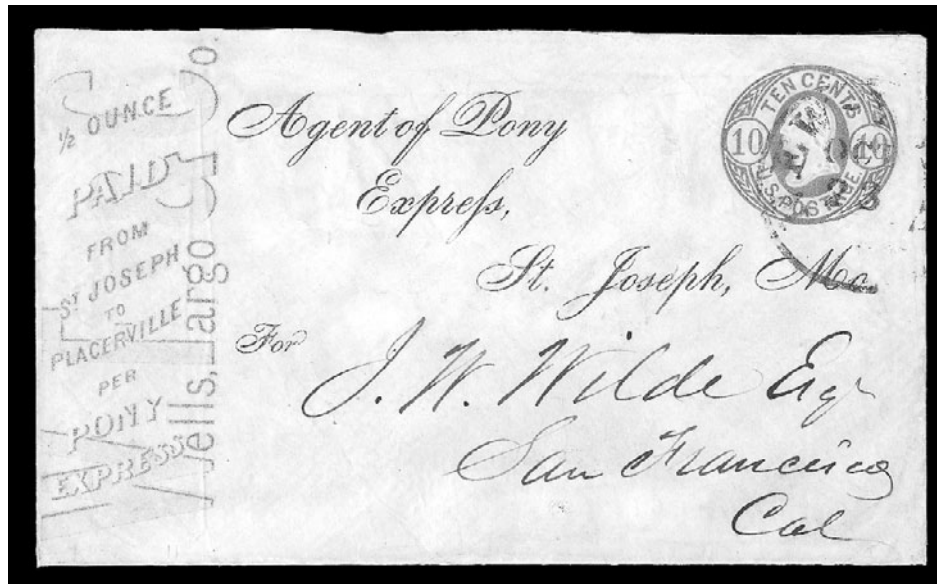 ½ OUNCE
PAID
FROM
ST JOSEPH
TO
PLACERVILLE
PER
PONY
EXPRESS
ells, argo
o
Agent of Pony
Express,
St. Joseph, Mo.
For
J. W. Wilde Esqr
San Francisco
Cal
TEN CENTS
10 10
U.S. POSTAGE
OCT
3